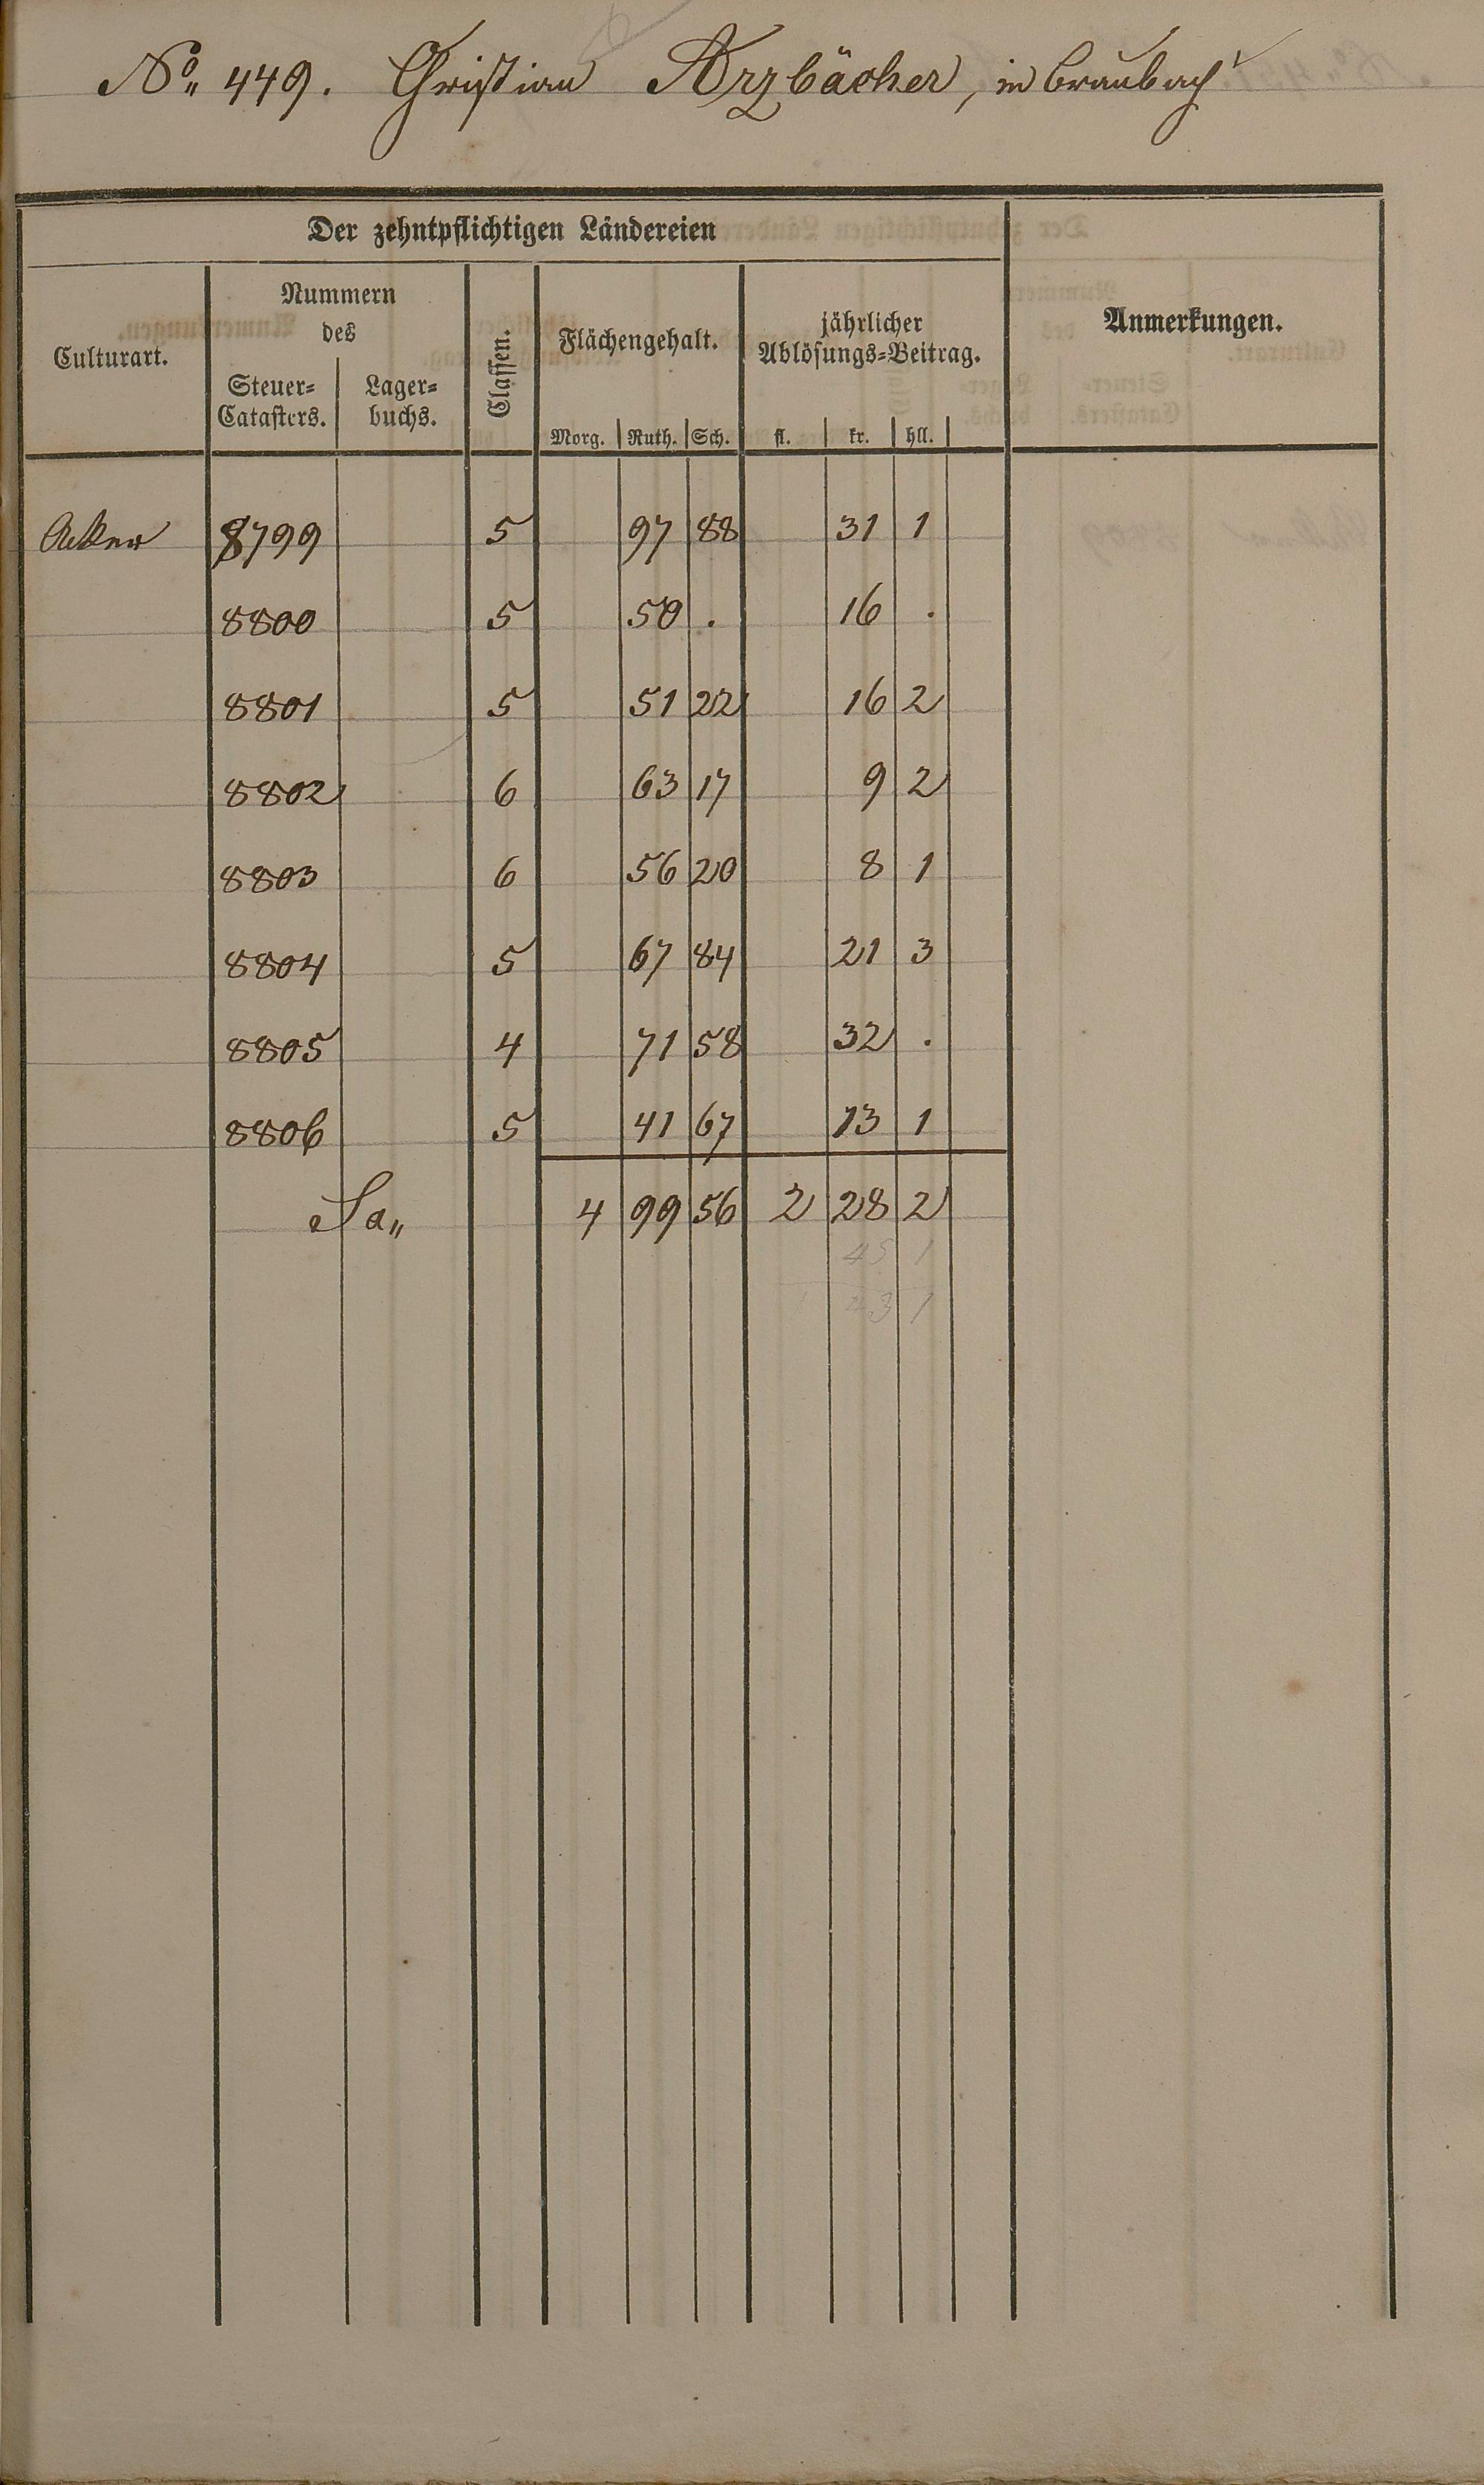 No. 449. Christian Arzbächer, in Braubach
Der zehntpflichtigen Ländereien
Anmerkungen.
Culturart.
Nummern
des
Steuer=
Catasters.
Lager=
buchs.
Classen.
Flächengehalt.
Morg. Ruth. Sch.
jährlicher
Ablösungs=Beitrag.
fl. kr. hll.
Acker 8799 5 97 88 31 1
8800 5 50 . 16 .
8801 5 51 22 16 2
8802 6 63 17 9 2
8803 6 56 20 8 1
8804 5 67 84 21 3
8805 4 71 58 32 .
8806 5 41 67 13 1
Sa„ 4 99 56 2 28 2
45 1
1 43 1